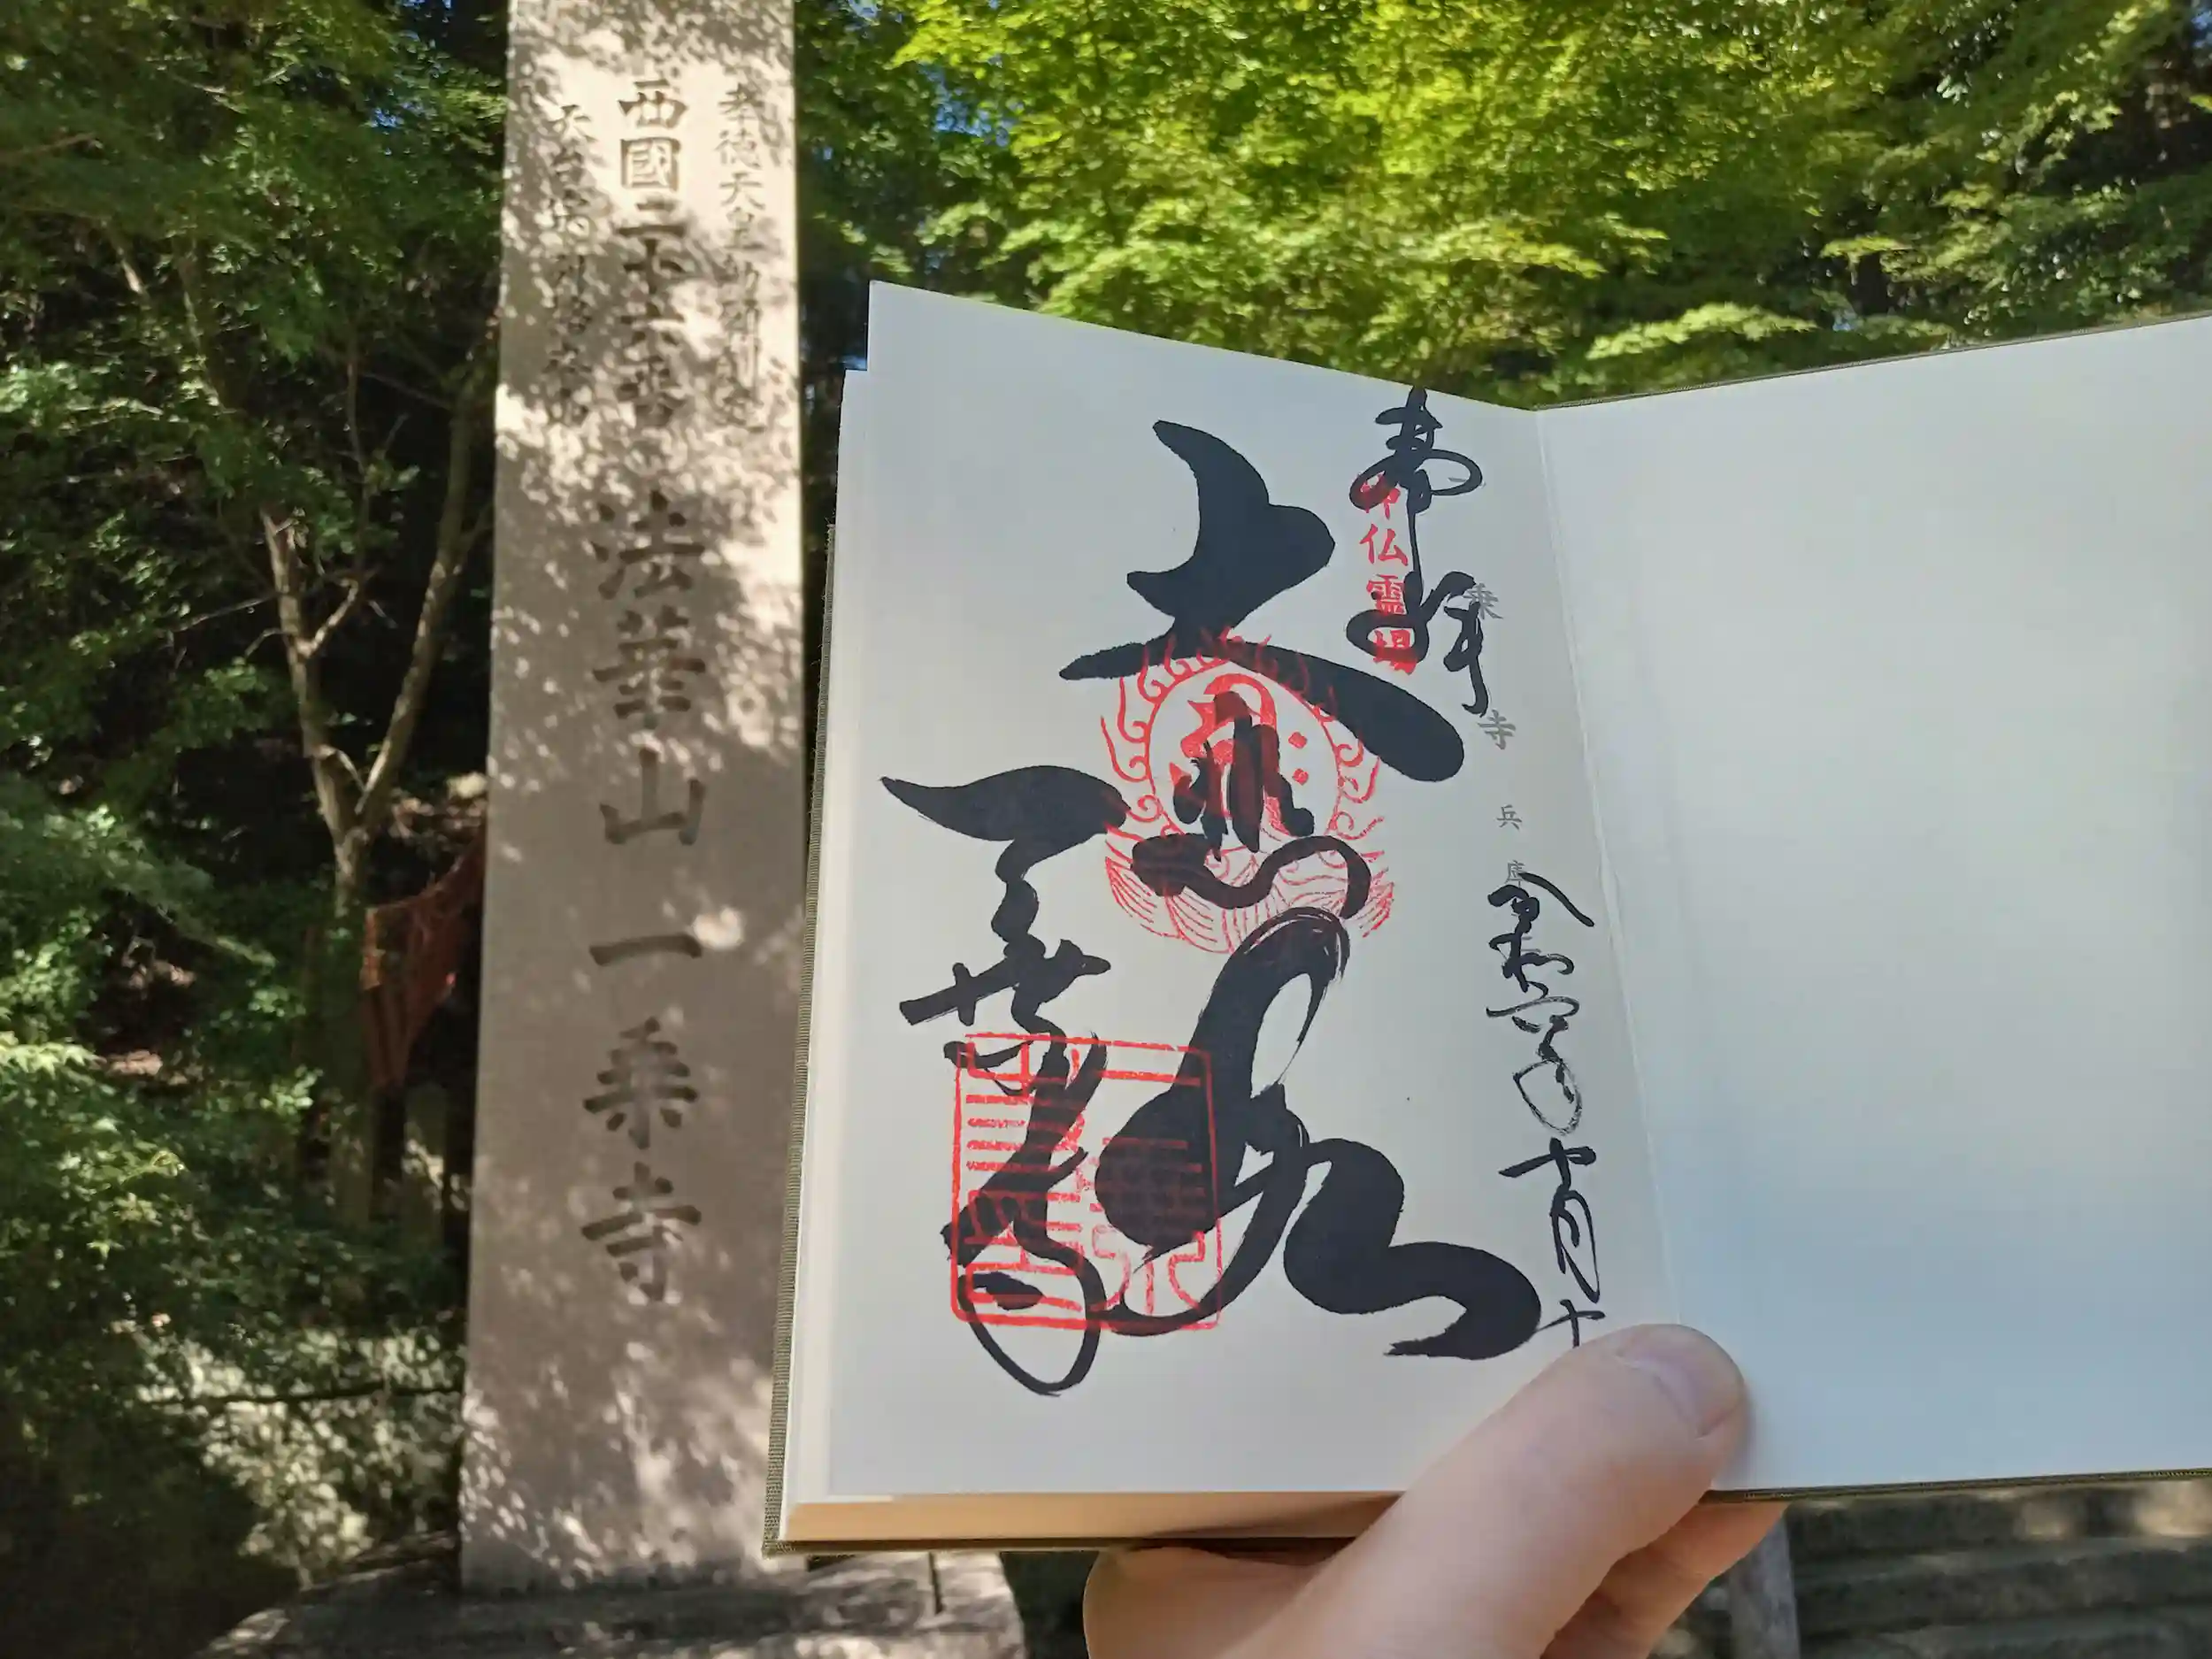 孝徳天皇勅願創立
西國二十六番 法華山 一乗寺
天台宗別格本山
奉拝
神仏霊場
乗寺 兵庫
令和六年十一月十
大悲殿
一乗寺